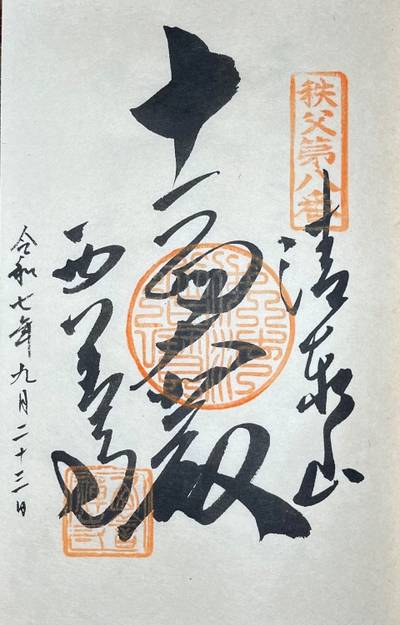 秩父第八番
清泰山
十一面大殿
西善寺
令和七年九月二十三日